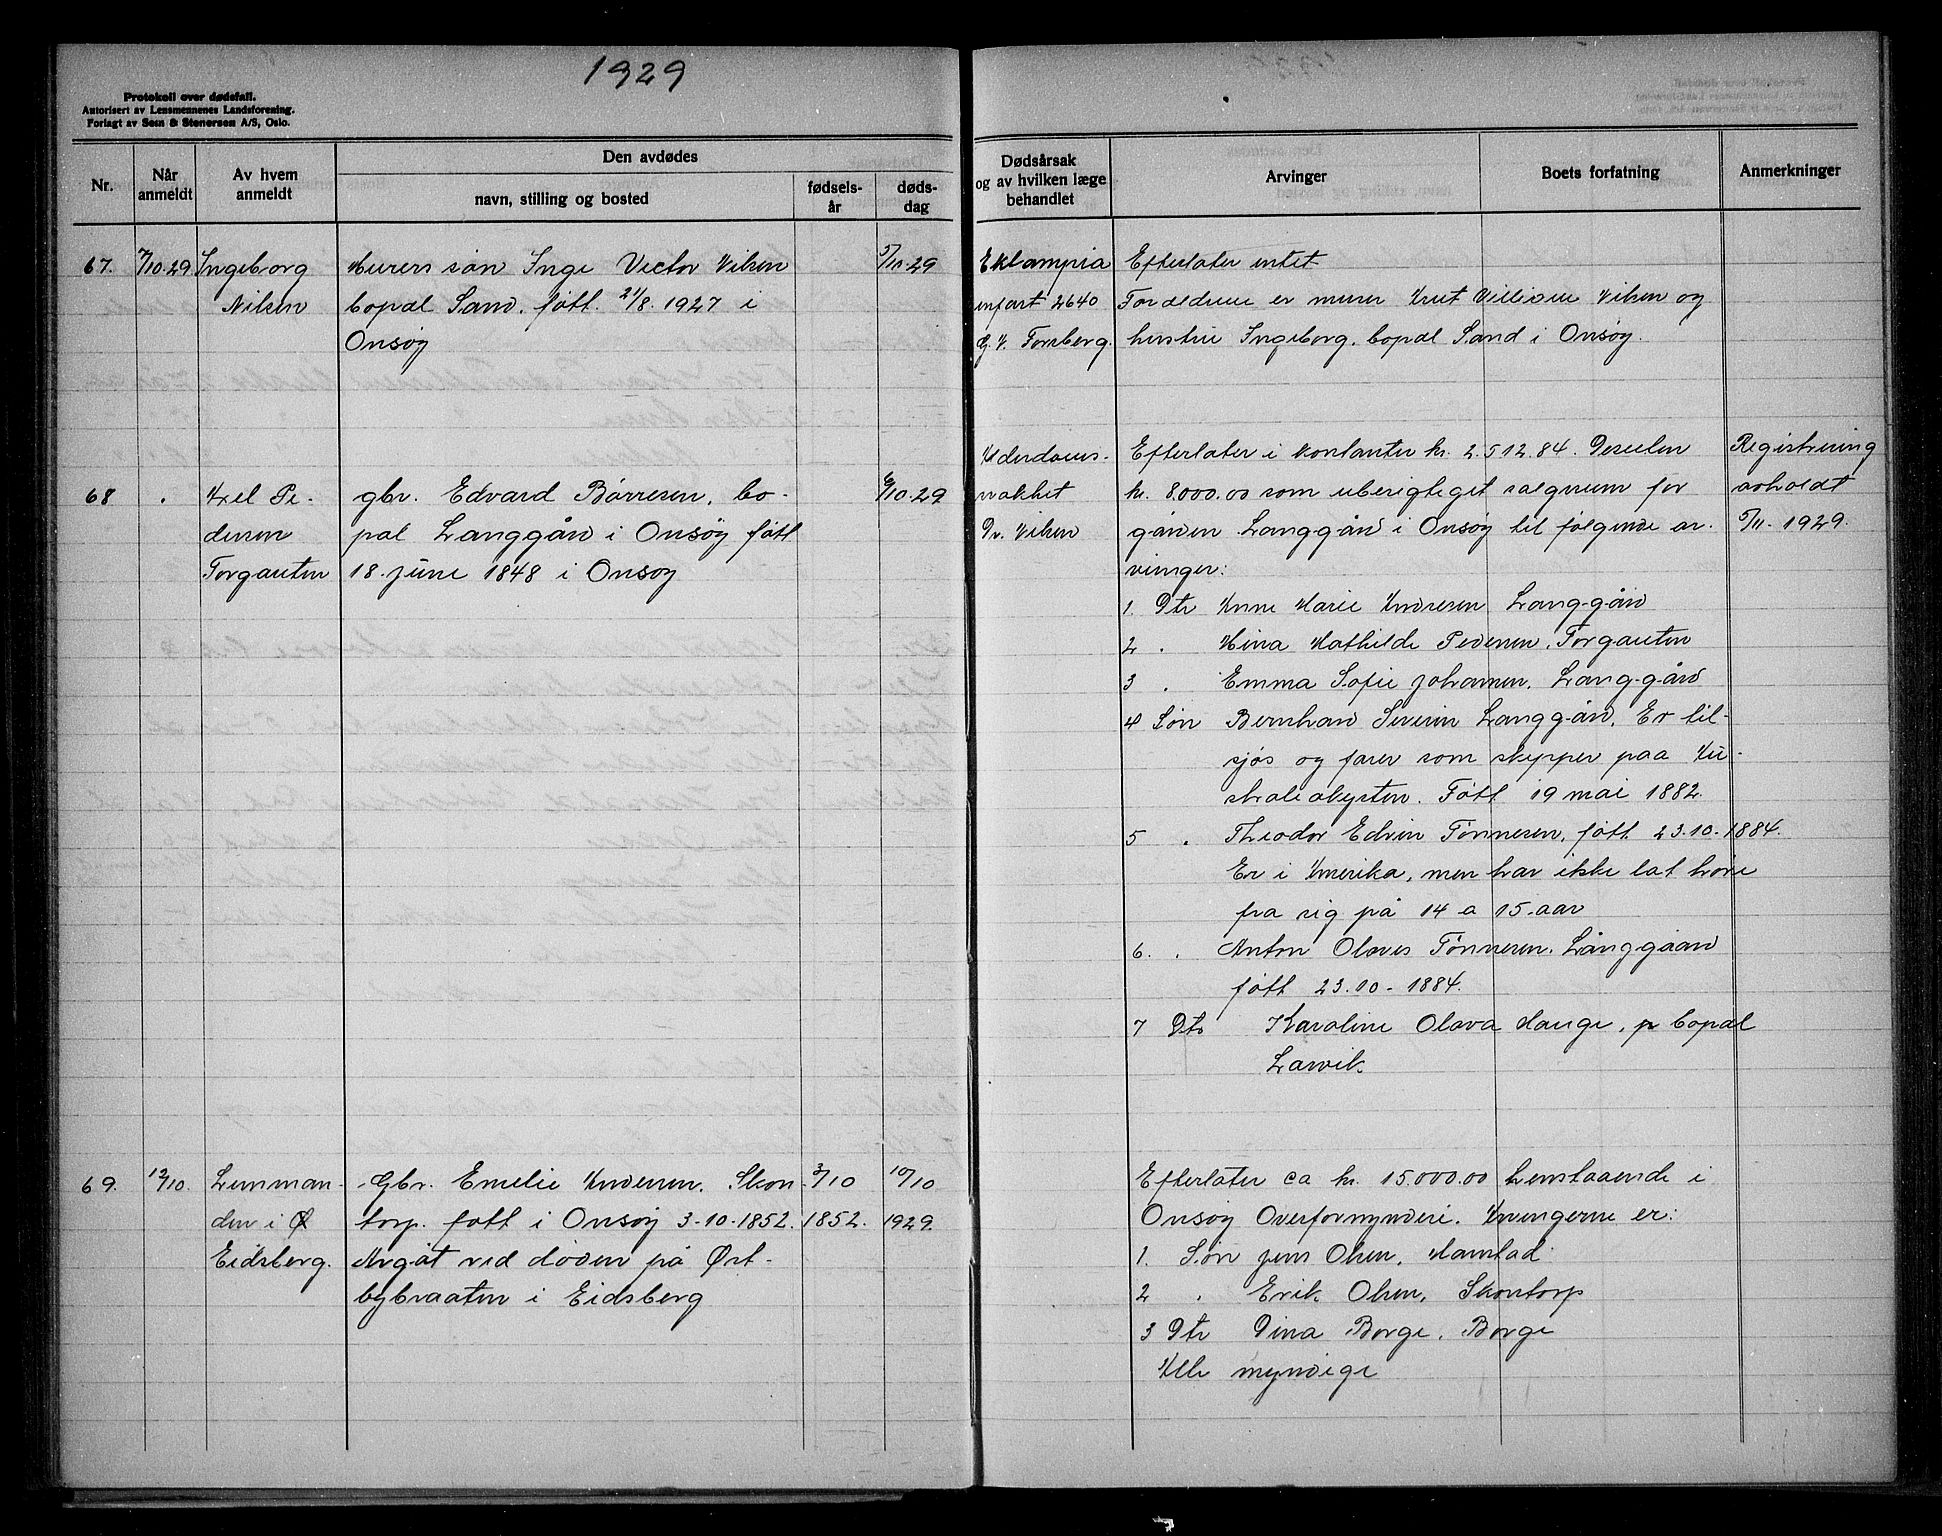 1929
Protokoll over dødsfall.
Autorisert av Lensmennenes Landsforening.
Forlagt av Sem & Stenersen A/S, Oslo.
Nr.
Når anmeldt
Av hvem anmeldt
Den avdødes
navn, stilling og bosted
fødsels-år
døds-dag
Dødsårsak og av hvilken læge behandlet
Arvinger
Boets forfatning
Anmerkninger
67. 7/10.29 Ingeborg Murers søn Inge Victor Nilsen 5/10.29
Nilsen bopæl Sand. født 21/8. 1927 i
Onsøy
Eklampsia Efterlater intet
infart 2640 Foreldrene er murer Knut Villiam Nilsen og
G. V. Forsberg. hustru Ingeborg. bopæl Sand i Onsøy.
68 . Axel Pe- gbr. Edvard Børresen, bo- 6/10.29
dersen pæl Langgård i Onsøy født
Torgauten 18. june 1848 i Onsøy
Alderdoms- Efterlater i kontanter kr. 2.512.84. Desuten Registrering
svakhet kr. 8.000.00 som uberigtiget salgssum for avholdt
Dr. Nilsen gården Langgård i Onsøy til følgende ar- 5/11. 1929.
vinger:
1. Dtr Anne Marie Andresen Langgård
2 . Mina Mathilde Pedersen. Torgauten
3 . Emma Sofie Johansen. Langgård
4 Søn Bernhard Severin Langgård. Er til-
sjøs og farer som skipper paa Au-
straliakysten. Født 19 mai 1882.
5 . Theodor Edvin Tønnesen, født 23.10.1884.
Er i Amerika, men har ikke lat høre
fra sig på 14 a 15. aar
6. . Anton Olaves Tønnesen. Långgaard
født 23.10-1884.
7 Dtr Karoline Olava Hauge, bopæl
Larvik
69. 12/10. Lensman- Gbr. Emelie Andersen. Skon- 3/10 10/10
den i Ø torp. født i Onsøy 3-10-1852. 1852. 1929.
Eidsberg. Avgåt ved døden på Øst-
bybraaten i Eidsberg
Efterlater ca kr. 15.000.00 henstaaende i
Onsøy Overformynderi. Arvingerne er:
1. Søn Jens Olsen, Hamstad.
2 . Erik Olsen, Skontorp
3 Dtr Dina Borge. Borge
Alle myndige